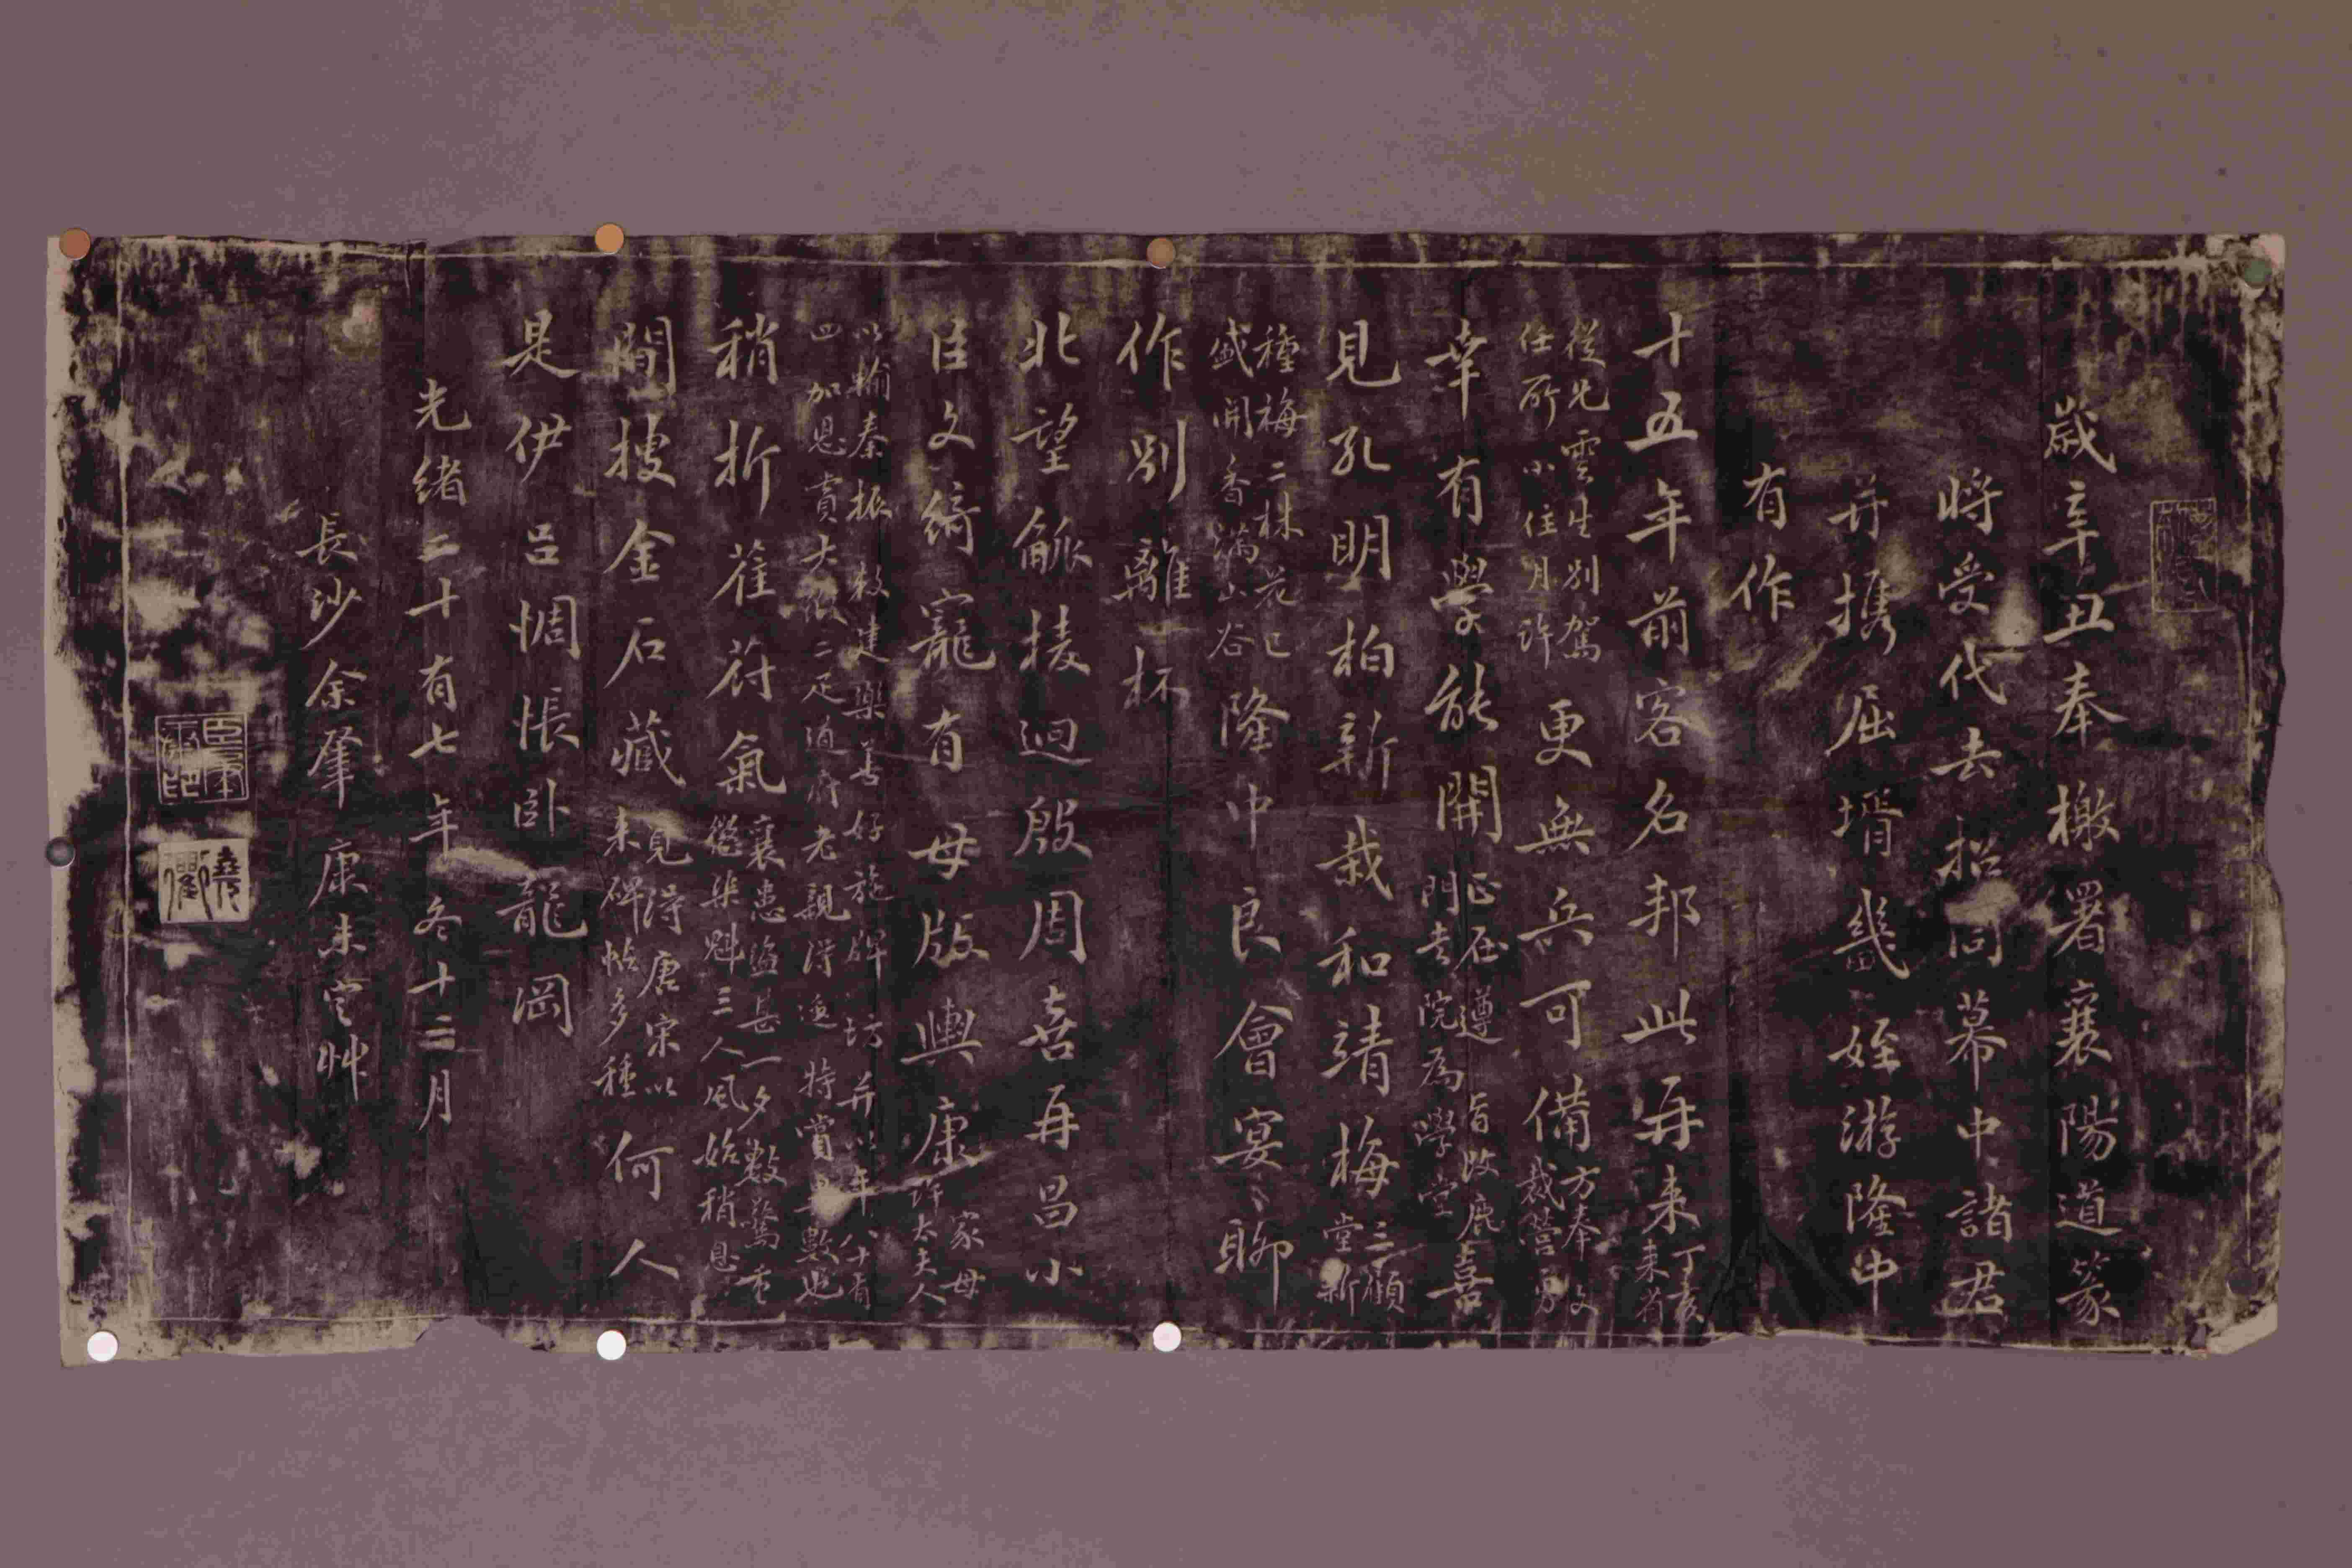 歲辛丑奉檄署襄陽道篆
將受代去招同幕中諸君
并攜屈壻幾姪游隆中
有作
十五年前客名邦此再来丁亥来省
從兄雲生別駕任所小住月許更無兵可備方奉文裁營勇
幸有學能開正在遵旨改鹿門書院為學堂喜
見孔明柏新栽和靖梅三顧堂新
種梅二株花已盛開香滿山谷隆中良會宴聊
作別離杯
北望觚棱迴殷周喜再昌小
臣文綺寵有母版輿康家母許太夫人
以輸秦振敕建樂善好施牌坊并以年八十有四加恩賚大緞二疋道府老親得邀特賞異數也
稍折萑苻氣襄患盜甚一夕數驚重懲渠魁三人風始稍息
間搜金石藏見得唐宋以来碑帖多種何人
是伊呂惆悵卧龍岡
光緒二十有七年冬十二月
長沙余肇康未定艸